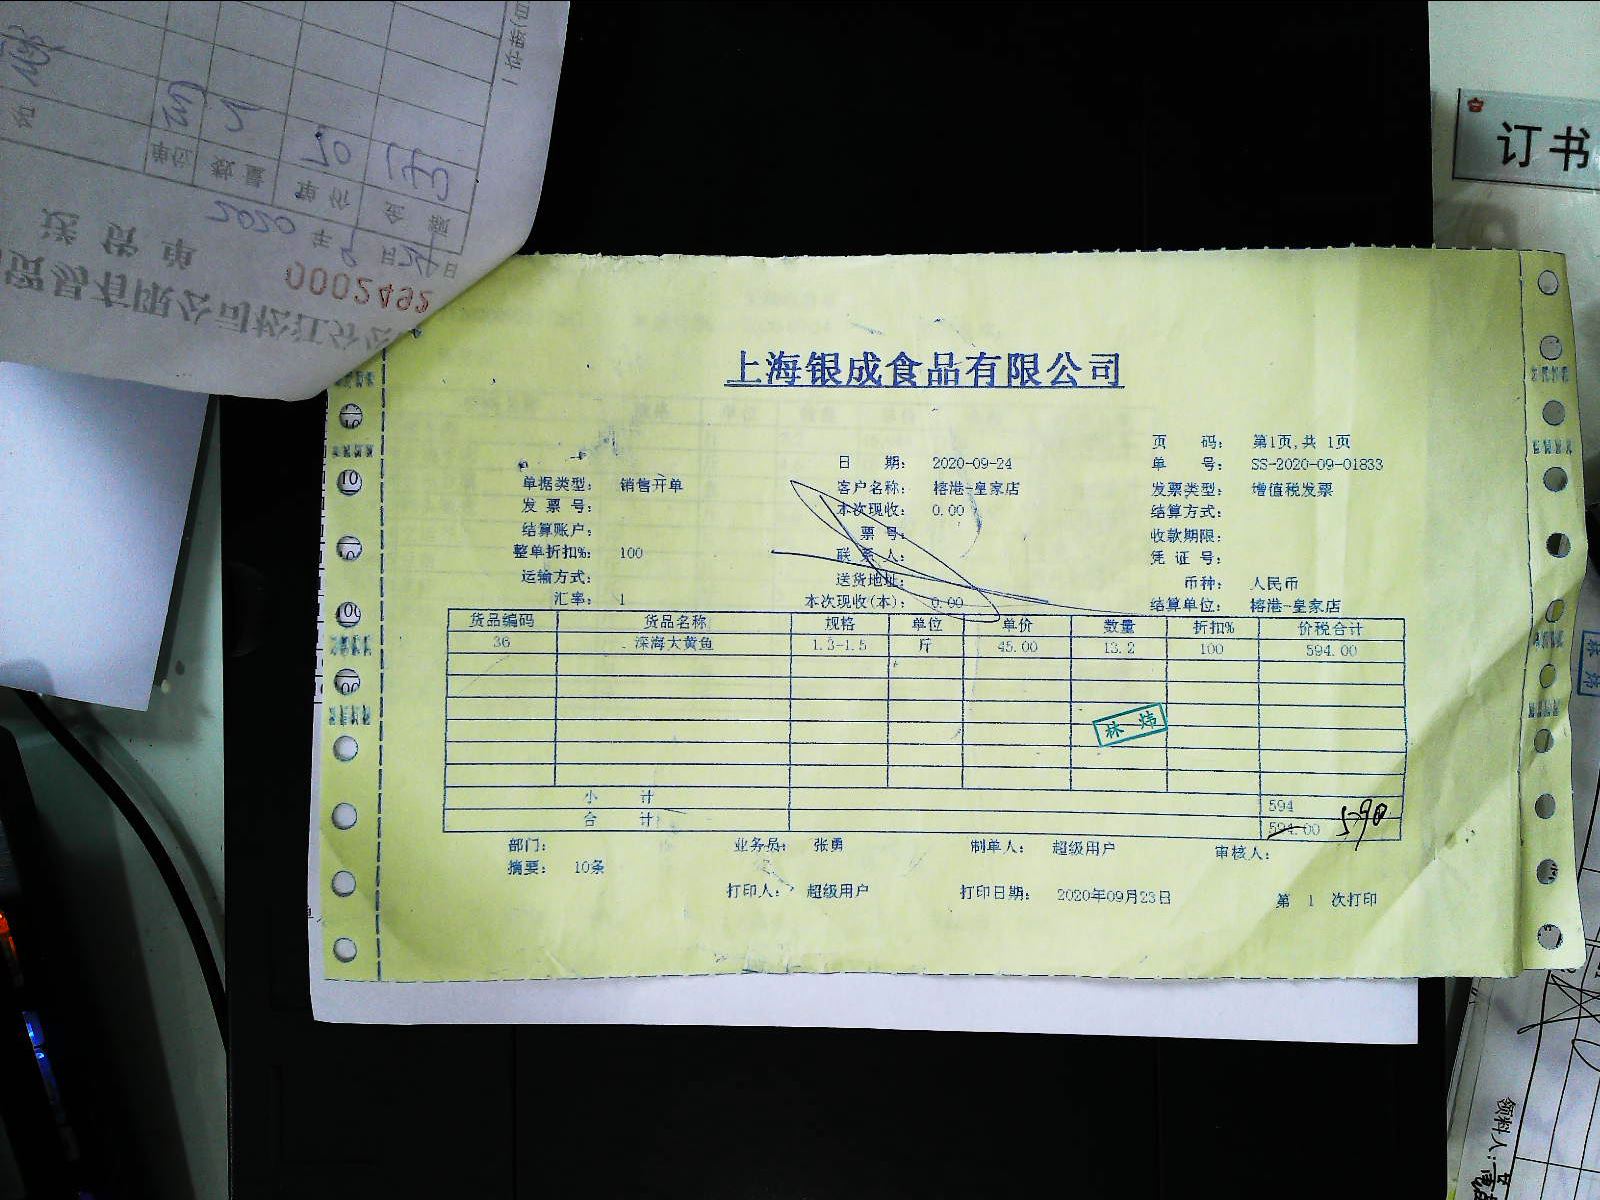 订书
送货单
0002492
2020年9月24日
单位 数量 单价 金额
上海银成食品有限公司
页 码： 第1页,共 1页
日 期： 2020-09-24 单 号： SS-2020-09-01833
单据类型： 销售开单 客户名称： 榕港-皇家店 发票类型： 增值税发票
发 票 号： 本次现收： 0.00 结算方式：
结算账户： 票 号： 收款期限：
整单折扣%： 100 联 系 人： 凭 证 号：
运输方式： 送货地址： 币种： 人民币
汇率： 1 本次现收(本)： 0.00 结算单位： 榕港-皇家店
货品编码 货品名称 规格 单位 单价 数量 折扣% 价税合计
36 深海大黄鱼 1.3-1.5 斤 45.00 13.2 100 594.00
林 炜
小 计 594
合 计 594.00 590
部门： 业务员： 张勇 制单人： 超级用户 审核人：
摘要： 10条
打印人： 超级用户 打印日期： 2020年09月23日 第 1 次打印
领料人：